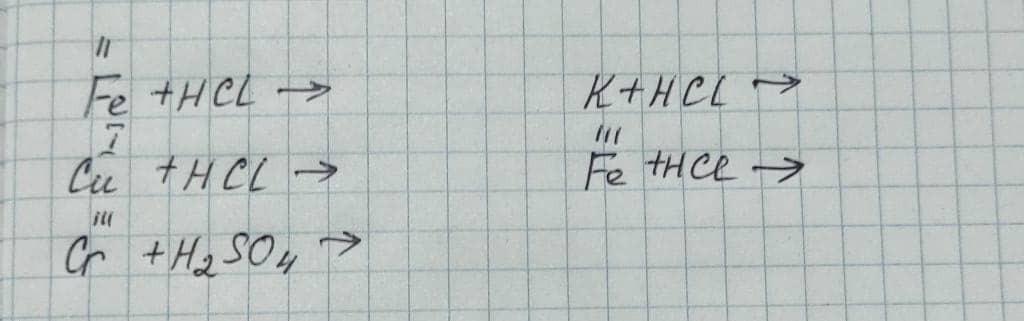 II
Fe + HCl →
I
Cu + HCl →
III
Cr + H₂SO₄ →
K + HCl →
III
Fe + HCl →